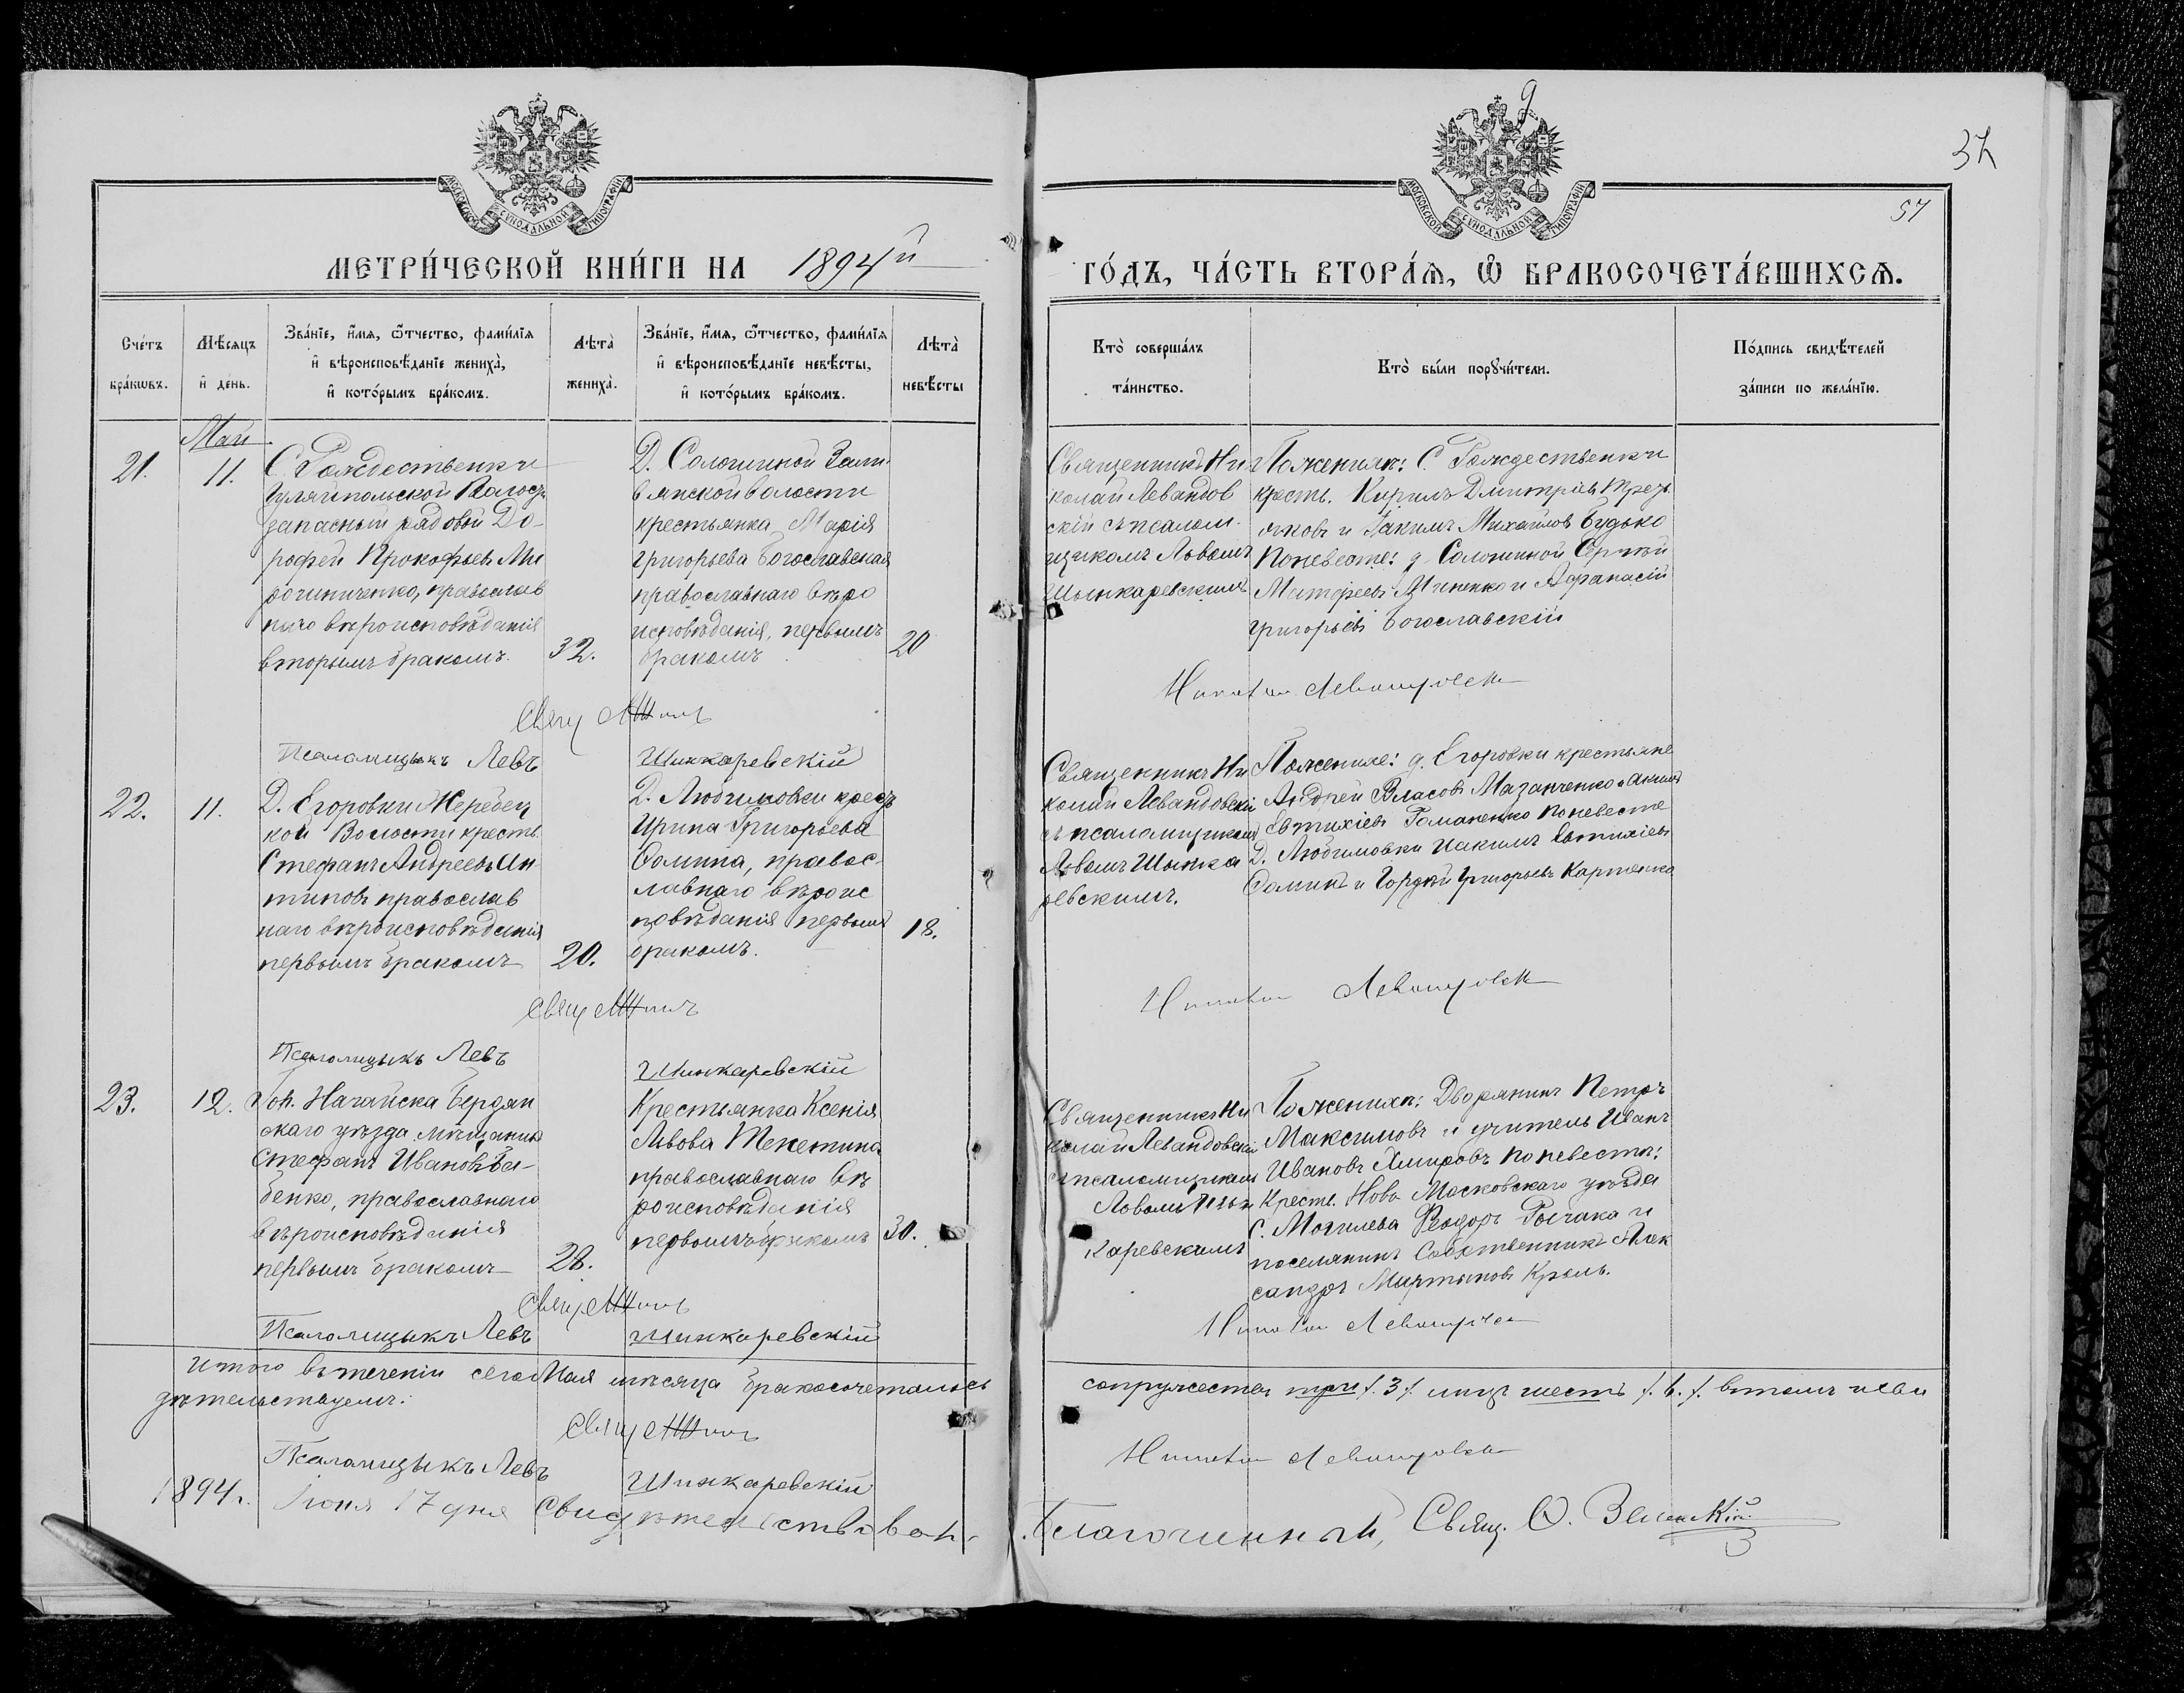 9
37
57
МОСКОВСКОЙ СѴНОДАЛЬНОЙ ТИПОГРАФІИ
МОСКОВСКОЙ СѴНОДАЛЬНОЙ ТИПОГРАФІИ
МЕТРИ́ЧЕСКОЙ КНИ́ГИ НА 1894й
ГО́ДЪ, ЧА́СТЬ ВТОРА́Ѧ, Ѿ БРАКОСОЧЕТА́ВШИХСѦ.
Сче́тъ
бра́кѡвъ.
Мѣ́сяцъ
и҆ де́нь.
Зва́нїе, и҆́мѧ, ѻ҆́тчество, фами́лїѧ
и҆ вѣроисповѣ́данїе жениха̀,
и҆ кото́рымъ бра́комъ.
Лѣта̀
жениха̀.
Зва́нїе, и҆́мѧ, ѻ҆́тчество, фами́лїѧ
и҆ вѣроисповѣ́данїе невѣ́сты,
и҆ кото́рымъ бра́комъ.
Лѣта̀
невѣ́сты
Кто̀ соверша́лъ
та́инство.
Кто̀ бы́ли порꙋчи́тели.
По́дпись свидѣ́телей
за́писи по жела́нїю.
Май
21.
11.
С. Рождественки
Гуляйпольской Волост.
запасный рядовой До-
рофей Прокофьевъ Ми
рошниченко, православ
наго вѣроисповѣданія
вторымъ бракомъ.
32.
Д. Солошиной
волости
крестьянка Марія
Григорьева Богославская
православнаго вѣро
исповѣданія, первымъ
бракомъ
20
Священникъ Ни
колай Левандов
скій съ псалом-
щикомъ Львомъ
Шынкаревскимъ
По женихѣ: С. Рождественки
кресть. Кирилъ Дмитріевъ
и Іакимъ Михайловъ Будько
По невесте: д. Солошиной Сергѣй
Матфеевъ и Афанасій
Григорьевъ Богославскій
Свящ
Псаломщыкъ Левъ Шинкаревскій
22.
11.
Д. Егоровки Жеребец
кой Волости кресть.
Стефанъ Андреевъ Ан-
типовъ православ
наго вѣроисповѣданія
первымъ бракомъ
20.
Д. Любимовки крест
Ирина Григорьева
Сомина, правос-
лавнаго вѣроис
повѣданія первымъ
бракомъ.
18.
Священникъ Ни
колай Левандовскій
съ псаломщикомъ
Львомъ Шынка
ревскимъ.
По женихе: д. Егоровки крестьяне
Андрей Власовъ Мазанченко
Евтихіевъ Романенко По невесте
Д. Любимовки Іакимъ Евтихіевъ
Соминъ и Гордѣй Григорьевъ Карпенко
Свящ
Псаломщыкъ Левъ Шинкаревскій
23.
12.
Пос. Нагайска Бердян
скаго уѣзда мѣщанинъ
Стефанъ Ивановъ Ба-
бенко, православнаго
вѣроисповѣданія
первымъ бракомъ
28.
Крестьянка Ксенія
Львова Текетина
православнаго вѣ
роисповѣданія
первымъ бракомъ
30.
Священникъ Ни
колай Левандовскій
съ псаломщикомъ
Львомъ Шын
каревскимъ
По женихѣ: Дворянинъ Петръ
Максимовъ и учитель Иванъ
Ивановъ По невестѣ:
Крест. Ново Московскаго уѣзда
с. Могилева Ѳеодоръ и
поселянинъ Собственникъ Алек
сандръ Мартыновъ Кроль.
Свящ
Псаломщыкъ Левъ Шинкаревскій
Итого въ теченіи сего Мая мѣсяца бракосочеталось
сопружества три /. 3 /. лицъ шесть /. 6. /. въ томъ и сви
дѣтельствуемъ:
Свящ
Псаломщыкъ Левъ Шинкаревскій
1894 г. Іюня 17 дня свидѣтельствовалъ
Благочинный, Свящ.